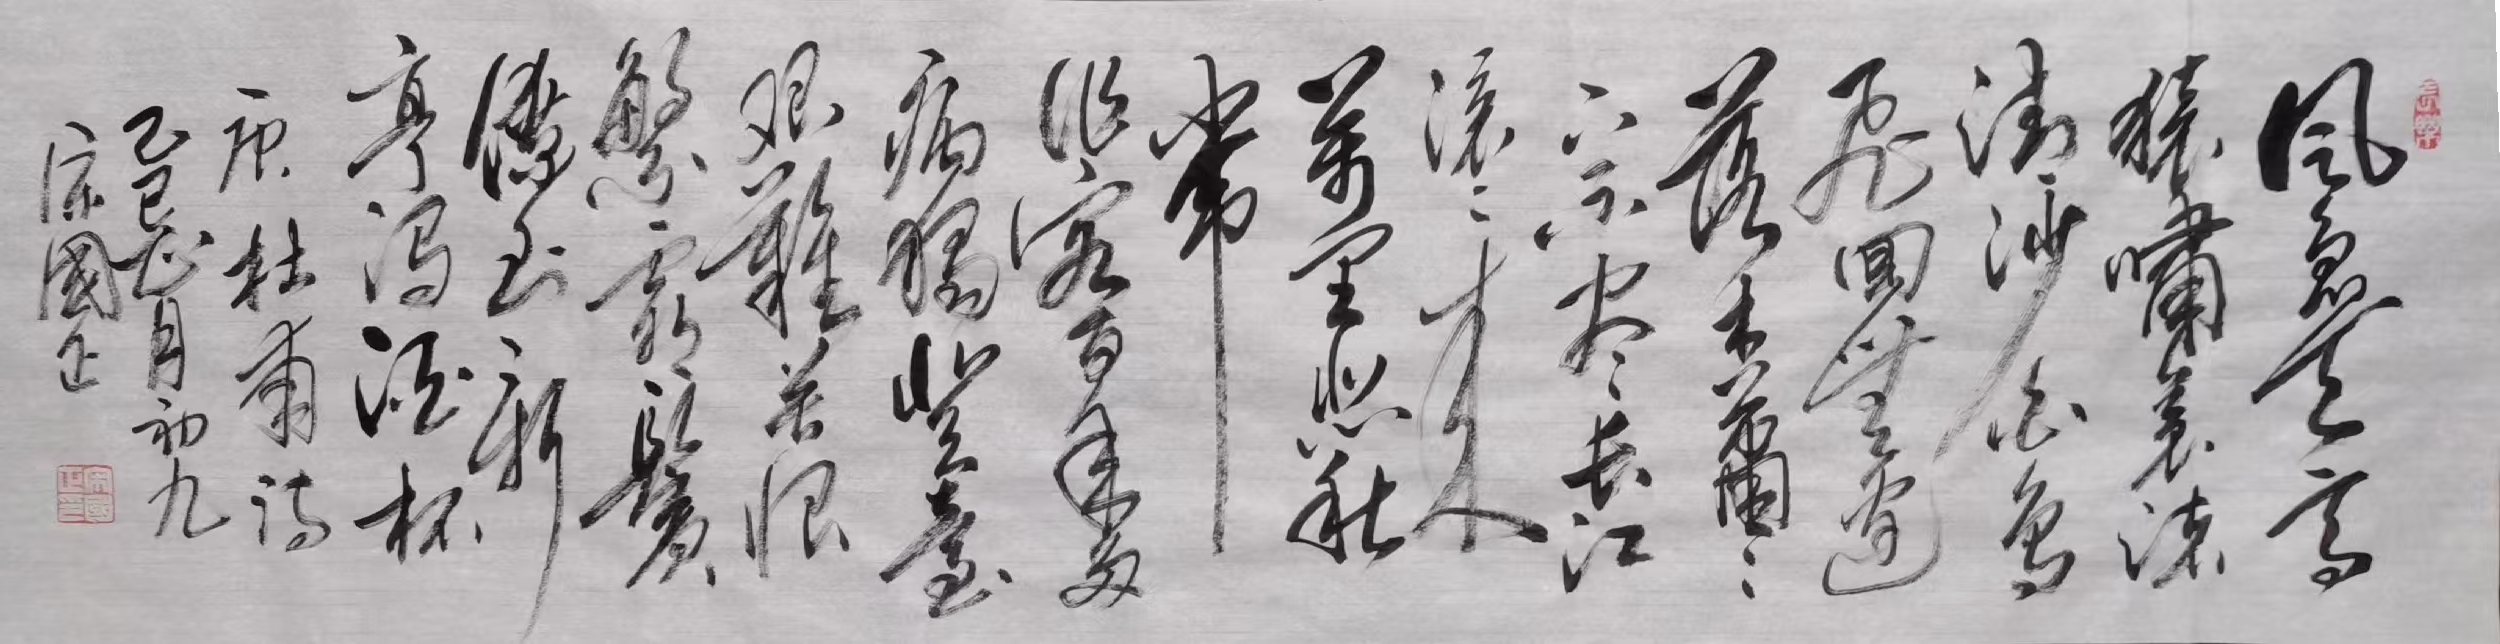 風急天高
猿嘯哀渚
清沙白鳥
飛回無邊
落木蕭〻
下不盡長江
滾〻來
萬里悲秋
常
作客百年多
病獨登臺
艱難苦恨
繁霜鬢
潦倒新
亭濁酒杯
唐杜甫詩
乙巳正月初九
宋國正